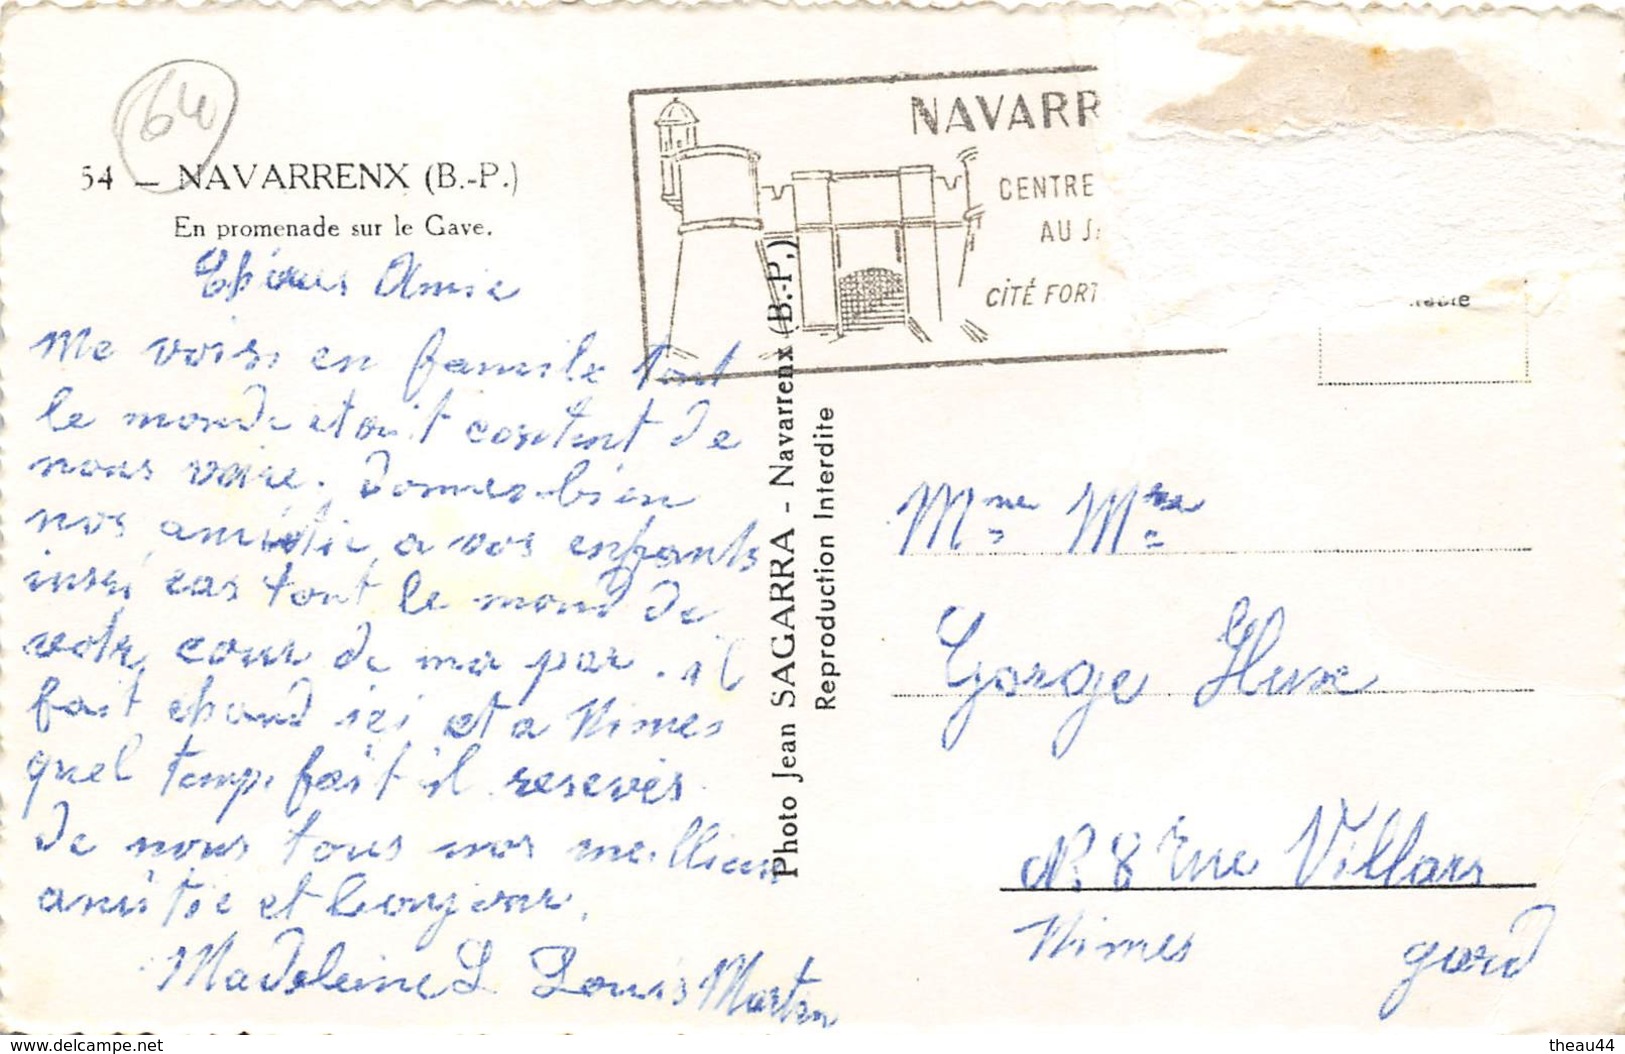 64
54 — NAVARRENX (B.-P.)
En promenade sur le Gave.
NAVARR
CENTRE
AU
CITÉ FORT
Amie
Me voisi en famille tout
le monde etait content de
nous voire. Donner bien
nos amitie a vos enfants
tout le mond de
votre cour de ma par. il
fait chaud ici et a Nimes
quel temp fait il resevés
de nous tous nos meillieur
amitie et bonjour.
Madeleine L Louis Martin
Photo Jean SAGARRA - Navarrenx (B.-P.)
Reproduction Interdite
Mme Mre
Gorge
N. 8 rue Villars
Nimes gard
www.delcampe.net
theau44